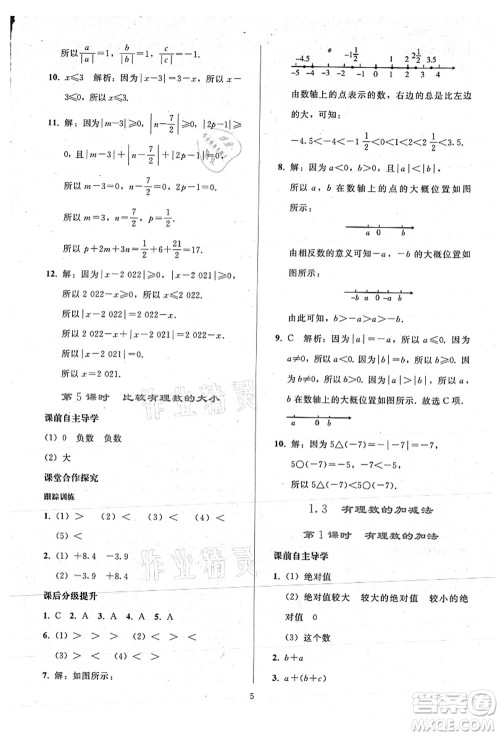 所以a/|a|=1,b/|b|=-1.
10. x≤3 解析:因为|x-3|=3-x,所以x-3≤0,所以x≤3.
11. 解:因为|m-3|≥0,|n-7/2|≥0,|2p-1|≥0,
且|m-3|+|n-7/2|+|2p-1|=0,
所以m-3=0,n-7/2=0,2p-1=0.
所以m=3,n=7/2,p=1/2.
所以p+2m+n=1/2+6+7/2=10.
12. 解:因为|x-2 021|≥0,
所以2 022-|x-2 021|≤2 022.
所以x=2 021.
第5课时 比较有理数的大小
课前自主导学
(1) 0 负数 负数
(2) 大
课堂合作探究
跟踪训练
1. (1) > (2) < (3) > (4) >
(5) <
2. (1) +8.4 -3.9 (2) -3.9
+8.4
课后分级提升
1. C 2. A 3. A 4. A 5. C
6. (1) > (2) > (3) < (4) <
7. 解:如图所示:
-4.5 -1/2 1 2 1/2
-5 -4 -3 -2 -1 0 1 2 3 4
由数轴上的点表示数,右边的总是比左边
的大,得
-4.5<-1<-1/2<0<1<2 1/2<3.5.
8. 解:因为a<0,b>0,且|a|<|b|,
所以a,b在数轴上的点的大概位置如图
所示:
a 0 b
由相反数的意义可知-a,-b在数轴上
的大概位置如图所示:
-b a 0 -a b
由此可知,b>-a>a>-b.
9. C 解析:因为|-a|=-a,所以a≤0.又
a≠0,所以a<0.故选C项.
10. 解:因为5△(-7)=-7,5○(-7)=5,
-7<5,
所以5△(-7)<5○(-7).
1.3 有理数的加减法
第1课时 有理数的加法
课前自主导学
1. (1) 绝对值
(2) 绝对值较大 较大的绝对值 较小的
绝对值 0
(3) 这个数
2. b+a
3. a+(b+c)
5